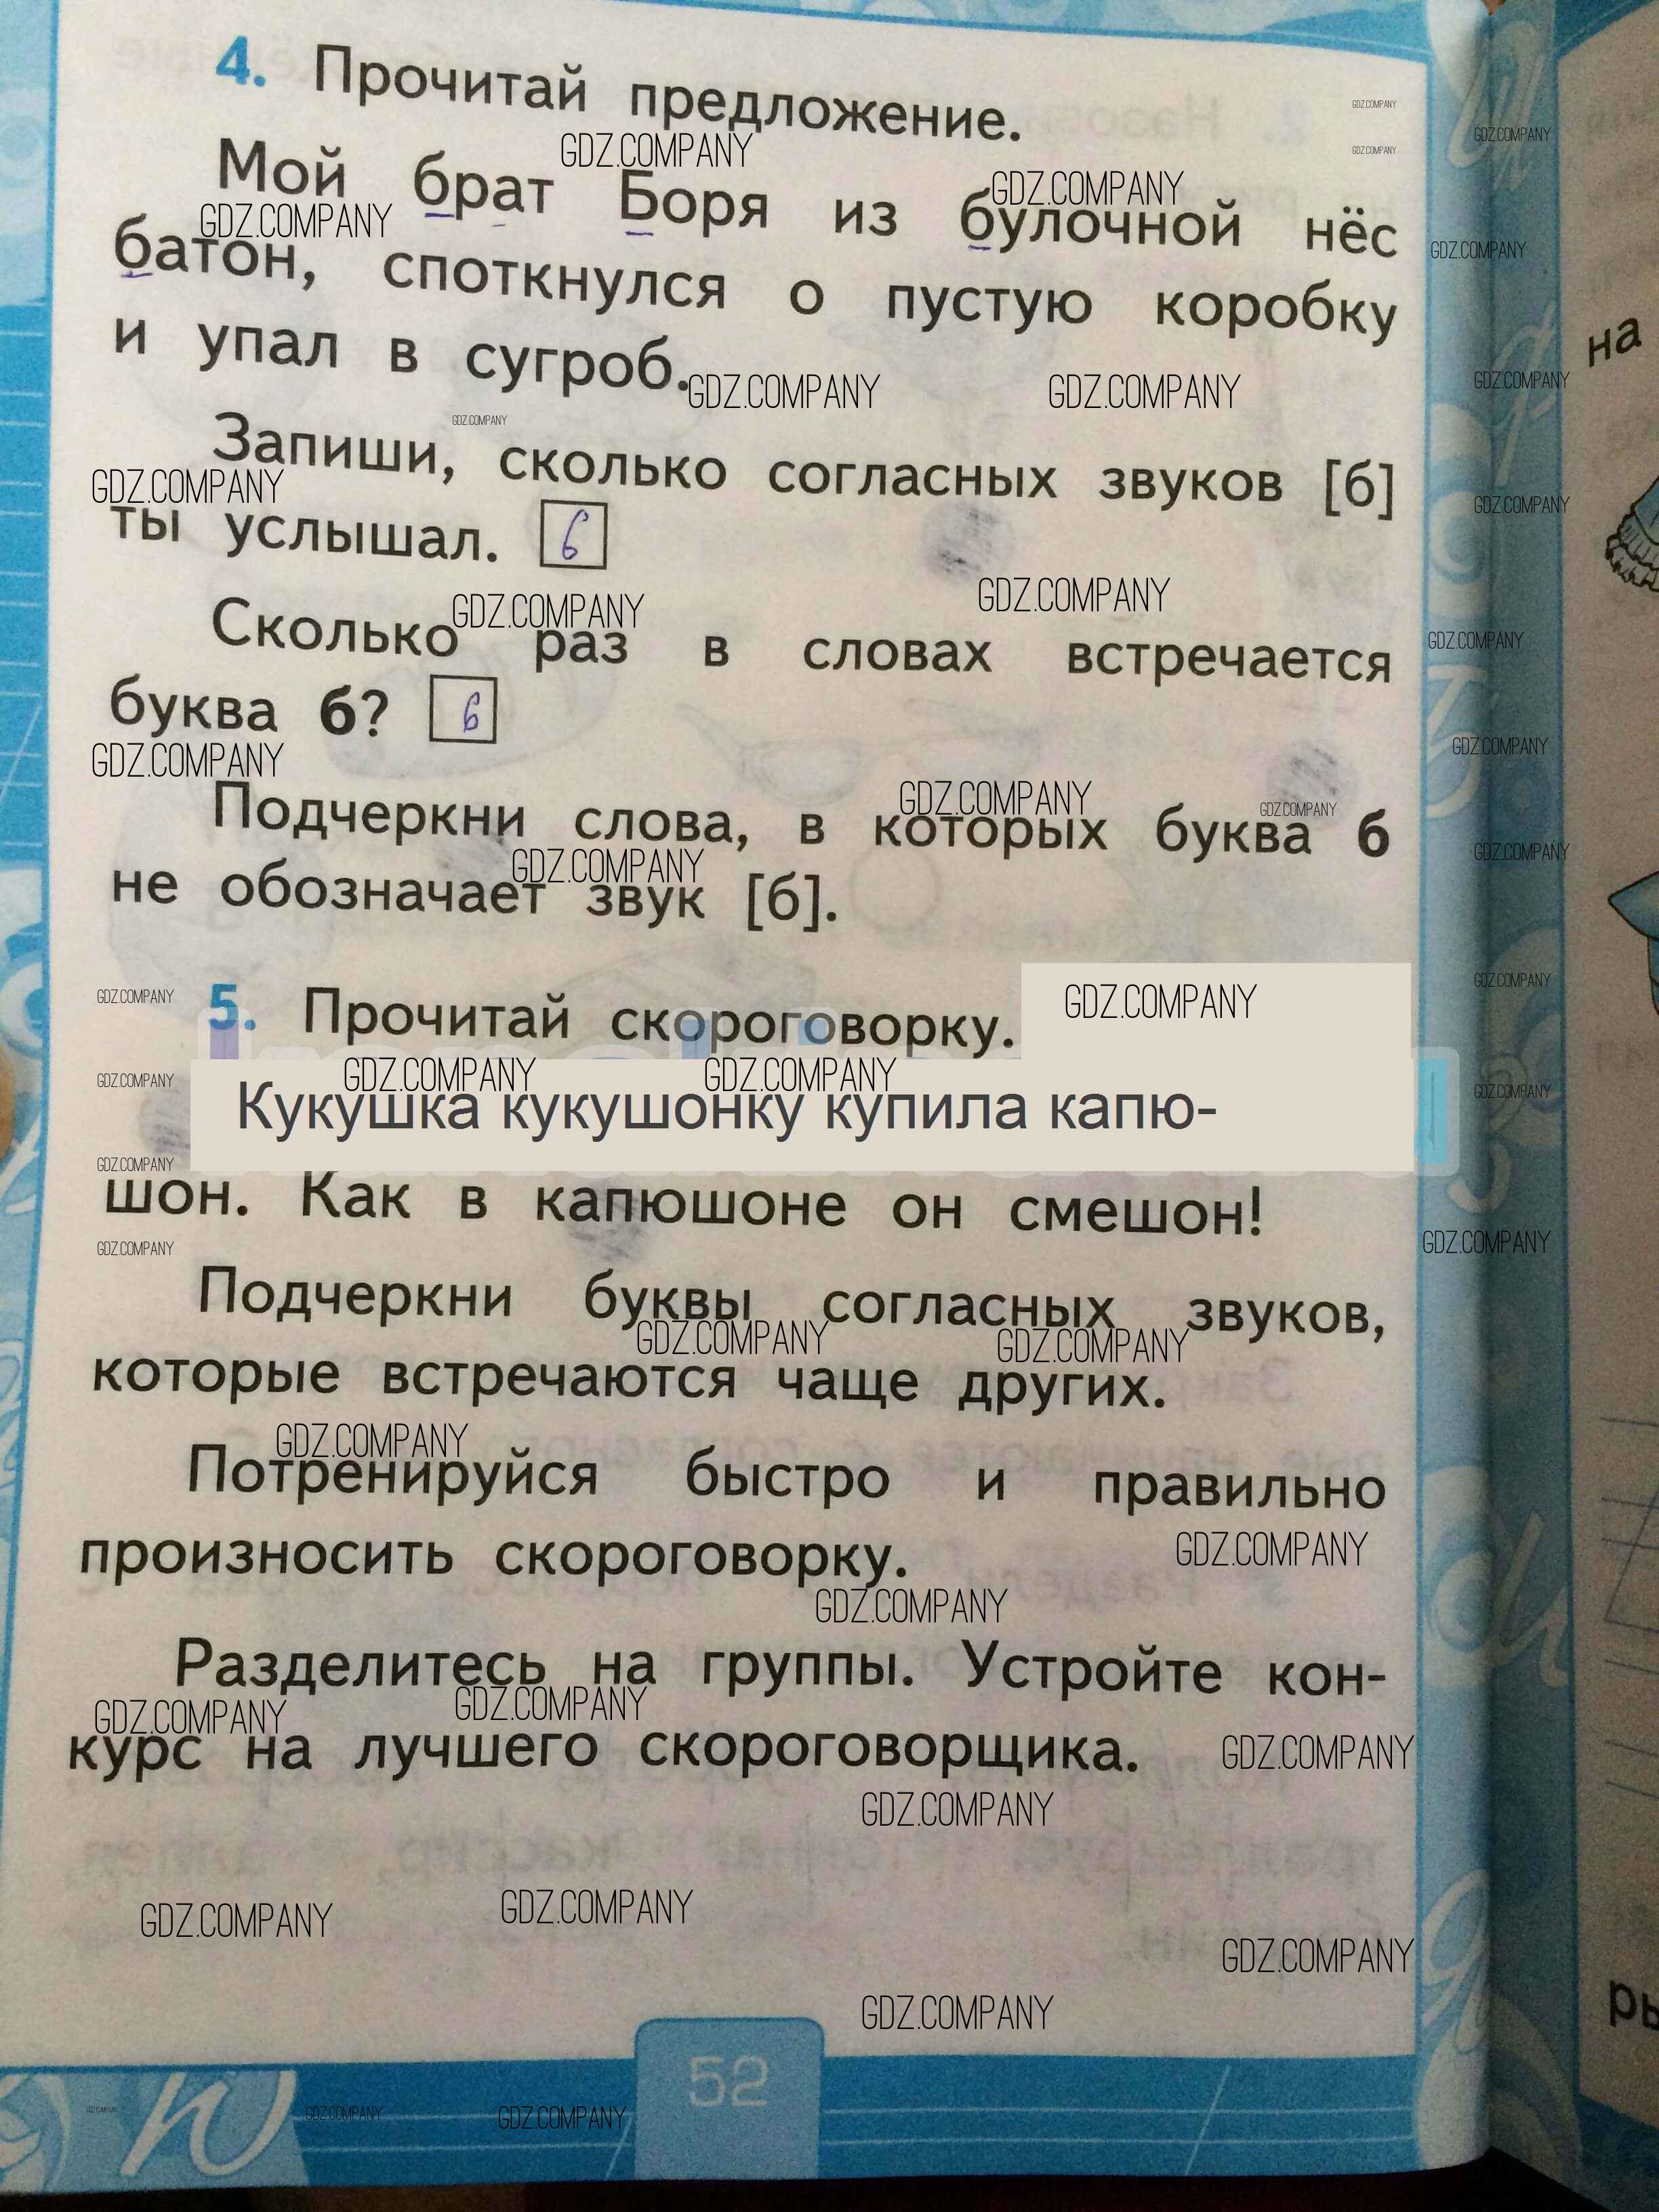 4. Прочитай предложение.
Мой брат Боря из булочной нёс
батон, споткнулся о пустую коробку
и упал в сугроб.
Запиши, сколько согласных звуков [б]
ты услышал. 6
Сколько раз в словах встречается
буква б? 6
Подчеркни слова, в которых буква б
не обозначает звук [б].
5. Прочитай скороговорку.
Кукушка кукушонку купила капю-
шон. Как в капюшоне он смешон!
Подчеркни буквы согласных звуков,
которые встречаются чаще других.
Потренируйся быстро и правильно
произносить скороговорку.
Разделитесь на группы. Устройте кон-
курс на лучшего скороговорщика.
52
на
ры
GDZ.COMPANY